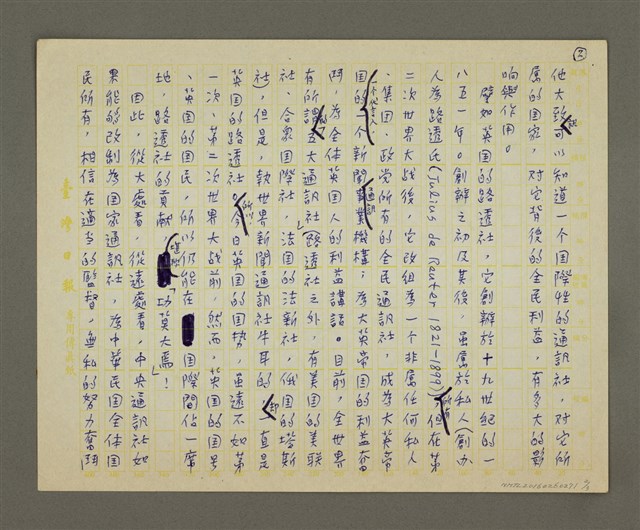 ②
他大致可以知道一个国際性的通訊社,对它所
屬的国家,对它背後的全民利益,有多大的影
响與作用。
譬如英国的路透社,它創辦於十九世紀的一
八五一年。創辦之初及其後,虽屬於私人(創办
人為路透氏(Julius de Reuter 1821-1899)),但在第
二次世界大战後,它改組為一个非屬任何私人
、集团、政党所有的全民通訊社,成為大英帝
国的一个新聞通訊事業機構;為大英帝国的利益奮
鬥,為全体英国人的利益講話。目前,全世界
有所謂五大通訊社(路透社之外,有美国的美联
社、合众国際社,法国的法新社,俄国的塔斯
社),但是,執世界新聞通訊社牛耳的,却真是
英国的路透社。所以今日英国的国势,虽遠不如第
一次、第二次世界大战前,然而,英国的国号
、英国的国民,所以仍能在国際間佔一席
地,路透社的貢献,「功莫大焉」!
因此,從大處看,從遠處看,中央通訊社如
果能的改制為国家通訊社,為中華民国全体国
民所有,相信在適当的監督,無私的努力奮鬥
臺灣日報